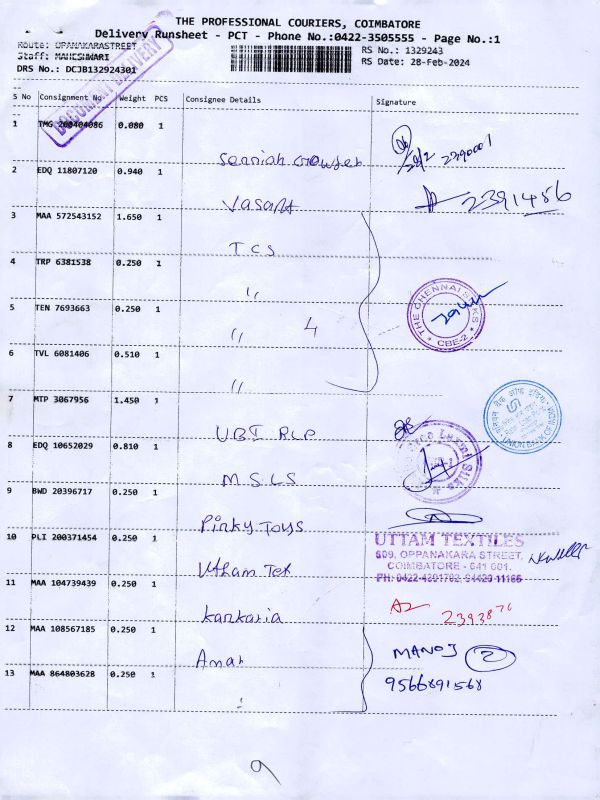 THE PROFESSIONAL COURIERS, COIMBATORE
Delivery Runsheet - PCT - Phone No.:0422-3505555 - Page No.:1
Route: OPPANAKARASTREET RS No.: 1329243
Staff: MAHESHWARI RS Date: 28-Feb-2024
DRS No.: DCJB132924301
DOCUMENT DELIVERY
S No Consignment No Weight PCS Consignee Details Signature
1 TMG 200404086 0.080 1
2390001
2 EDQ 11807120 0.940 1
Vasant 2391456
3 MAA 572543152 1.650 1
TCS
4 TRP 6381538 0.250 1
"
THE CHENNAI SILKS
CBE-2
5 TEN 7693663 0.250 1
" 4
6 TVL 6081406 0.510 1
"
7 MTP 3067956 1.450 1
UBI RLP
UNION BANK OF INDIA
8 EDQ 10652029 0.810 1
MSLS
9 BWD 20396717 0.250 1
Pinky Toys
10 PLI 200371454 0.250 1
UTTAM TEXTILES
609, OPPANAKARA STREET,
COIMBATORE - 641 001.
PH: 0422-4391702, 94420 11166
Utham Tex
11 MAA 104739439 0.250 1
Kankaria 239387
12 MAA 108567185 0.250 1
Amar MANOJ 2
13 MAA 864803628 0.250 1
" 9566891568
9